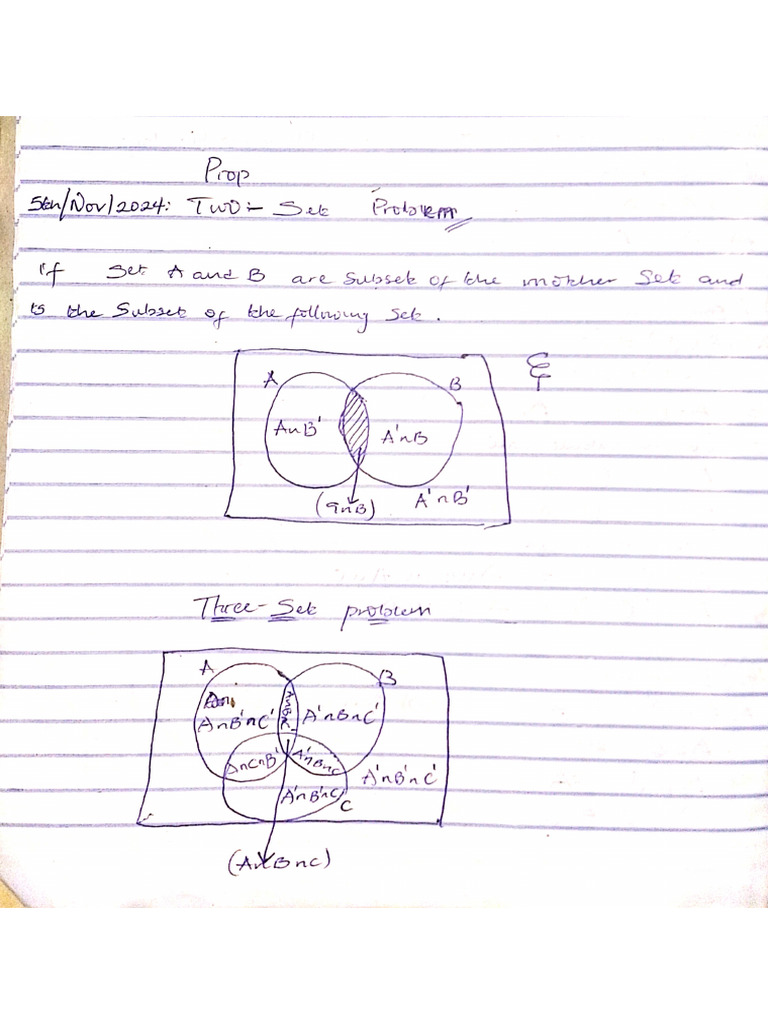 Prop
5th/Nov/2024: Two:- Set Problem
If Set A and B are subset of the mother Set and
is the Subset of the following Set.
ξ
A B
A∩B' A'∩B
(A∩B) A'∩B'
Three-Set problem
A B
A∩B'∩C' A'∩B∩C'
A∩C∩B' A'∩B∩C A'∩B'∩C'
A'∩B'∩C C
(A∩B∩C)